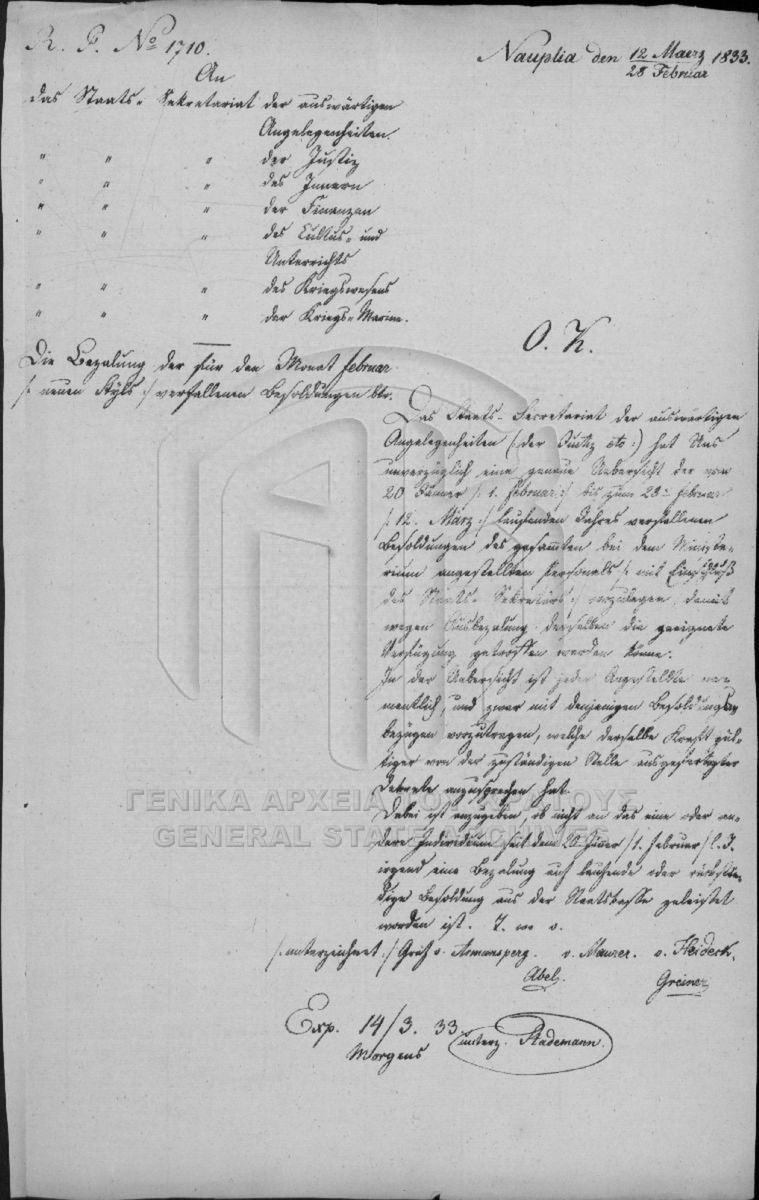 R. P. No 1710.
Nauplia den 12 Maerz / 28 Februar 1833.
An
das Staats- Sekretariat der auswärtigen
Angelegenheiten.
" " " der Justiz
" " " des Innern
" " " der Finanzen
" " " des Cultus- und
Unterrichts
" " " des Kriegswesens
" " " der Kriegs-Marine.
O. K.
Die Bezalung der für den Monat februar
/: neuen Styls :/ verfallenen Besoldungen btr.
Das Staats-Secretariat der auswärtigen
Angelegenheiten (: der Justiz etc :) hat Uns
unverzüglich eine genaue Uebersicht der vom
20 Jänner /: 1. Februar :/ bis zum 28. februar
/: 12. März :/ laufenden Jahres verfallenen
Besoldungen des gesammten bei dem Ministe-
rium angestellten Personals /: mit Einschluß
des Staats- Sekretärs :/ vorzulegen, damit
wegen Ausbezalung derselben die geeignete
Verfügung getroffen werden könne.
In der Uebersicht ist jeder Angestellte na-
mentlich, und zwar mit denjenigen Besoldungs-
bezügen vorzutragen, welche derselbe Kraft gül-
tiger von der zuständigen Stelle ausgefertigter
Dekrete anzusprechen hat.
Dabei ist anzugeben, ob nicht an das eine oder an-
dere Individuum seit dem 20 Jänner /1. februar/ l. J.
irgend eine Bezalung auf laufende oder rückstän-
dige Besoldung aus der Staatskasse geleistet
worden ist.
/: unterzeichnet :/ Graf v. Armansperg. v. Maurer. v. Heideck.
Abel. Greiner
Exp. 14/3. 33
Morgens
unterz. Stademann.
ΓΕΝΙΚΑ ΑΡΧΕΙΑ ΤΟΥ ΚΡΑΤΟΥΣ
GENERAL STATE ARCHIVES